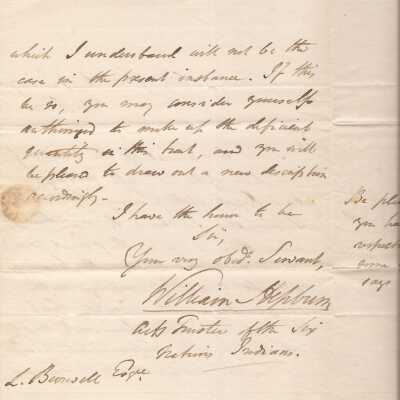 which I understand will not be the
case in the present instance. If this
be so, you may consider yourself
authorized to make up the deficient
quantity in this tract, and you will
be pleased to draw out a new description
accordingly.
I have the honor to be
Sir,
Your very obdt. Servant,
William Hepburn
Actg Trustee of the Six
Nations Indians.
L. Burwell Esqr.
Be plea
you ha
says